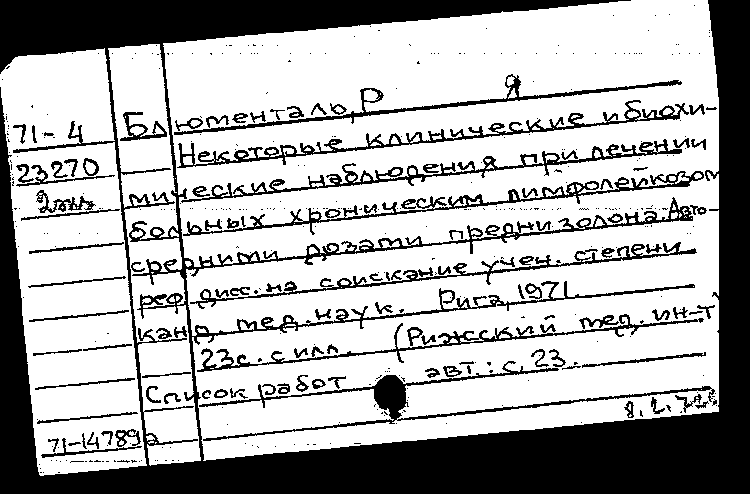 71-4
23270
2экз
Блюменталь, Р Я
Некоторые клинические и биохи-
мические наблюдения при лечении
больных хроническим лимфолейкозом
средними дозами преднизолона. Авто-
реф. дисс. на соискание учен. степени
канд. мед. наук. Рига, 1971.
23с. с илл. (Рижский мед. ин-т)
Список работ авт.: с. 23.
71-14789а